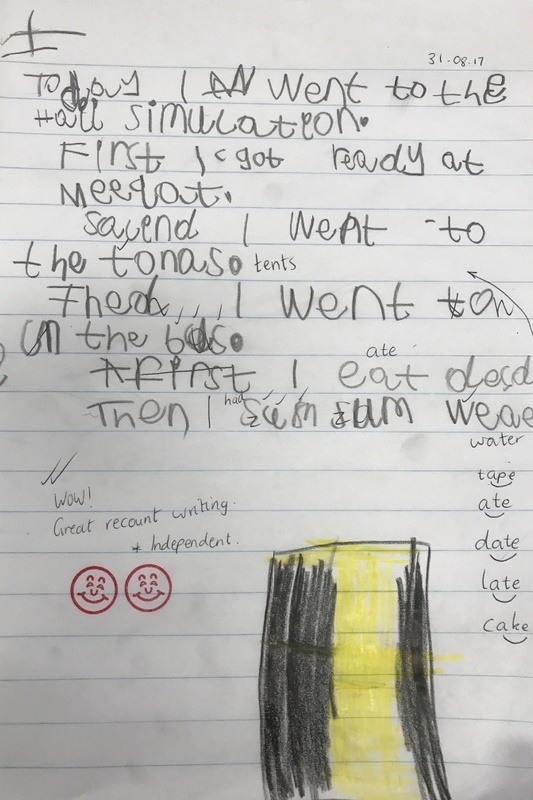 31.08.17
Today I went to the
Hall simulation.
First I got ready at
Meerqat.
Sacend I went to
the tonaso tents
Thed,,, I went on
in the bus.
ate
First, I eat dead
had
Then I sum weae
water
tape
ate
date
late
cake
Wow!
Great recount writing.
+ Independent.